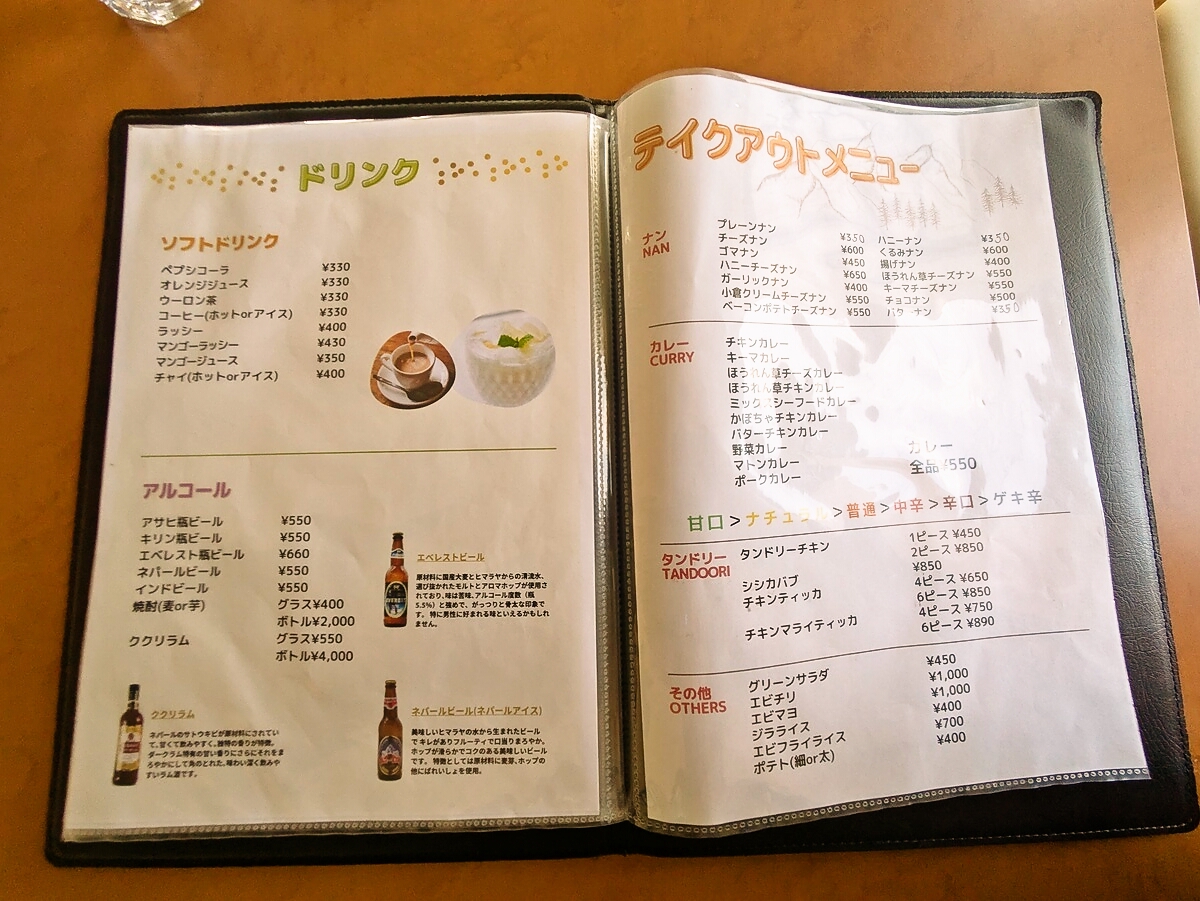 ドリンク
ソフトドリンク
ペプシコーラ ¥330
オレンジジュース ¥330
ウーロン茶 ¥330
コーヒー(ホットorアイス) ¥330
ラッシー ¥400
マンゴーラッシー ¥430
マンゴージュース ¥350
チャイ(ホットorアイス) ¥400
アルコール
アサヒ瓶ビール ¥550
キリン瓶ビール ¥550
エベレスト瓶ビール ¥660
ネパールビール ¥550
インドビール ¥550
焼酎(麦or芋) グラス¥400
ボトル¥2,000
ククリラム グラス¥550
ボトル¥4,000
エベレストビール
原材料に国産大麦とヒマラヤからの清流水、
選び抜かれたモルトとアロマホップが使用さ
れており、味は苦味、アルコール度数（瓶
5.5%）と強めで、がっつりと骨太な印象で
す。 特に男性に好まれる味といえるかもしれ
ません。
ククリラム
ネパールのサトウキビが原材料にされてい
て、甘くて飲みやすく、独特の香りが特徴。
ダークラム特有の甘い香りにさらにそれをま
ろやかにして角のとれた、味わい深く飲みや
すいラム酒です。
ネパールビール(ネパールアイス)
美味しいヒマラヤの水から生まれたビール
で キレがありフルーティで口当りまろやか。
ホップが滑らかでコクのある美味しいビール
です。 特徴としては原材料に麦芽、ホップの
他にばれいしょを使用。
テイクアウトメニュー
ナン
NAN
プレーンナン ¥350
チーズナン ¥600
ゴマナン ¥450
ハニーチーズナン ¥650
ガーリックナン ¥400
小倉クリームチーズナン ¥550
ベーコンポテトチーズナン ¥550
ハニーナン ¥350
くるみナン ¥600
揚げナン ¥400
ほうれん草チーズナン ¥550
キーマチーズナン ¥550
チョコナン ¥500
バターナン ¥350
カレー
CURRY
チキンカレー
キーマカレー
ほうれん草チーズカレー
ほうれん草チキンカレー
ミックスシーフードカレー
かぼちゃチキンカレー
バターチキンカレー
野菜カレー
マトンカレー
ポークカレー
カレー
全品¥550
甘口＞ナチュラル＞普通＞中辛＞辛口＞ゲキ辛
タンドリー
TANDOORI
タンドリーチキン 1ピース ¥450
2ピース ¥850
シシカバブ ¥850
チキンティッカ 4ピース ¥650
6ピース ¥850
チキンマライティッカ 4ピース ¥750
6ピース ¥890
その他
OTHERS
グリーンサラダ ¥450
エビチリ ¥1,000
エビマヨ ¥1,000
ジラライス ¥400
エビフライライス ¥700
ポテト(細or太) ¥400